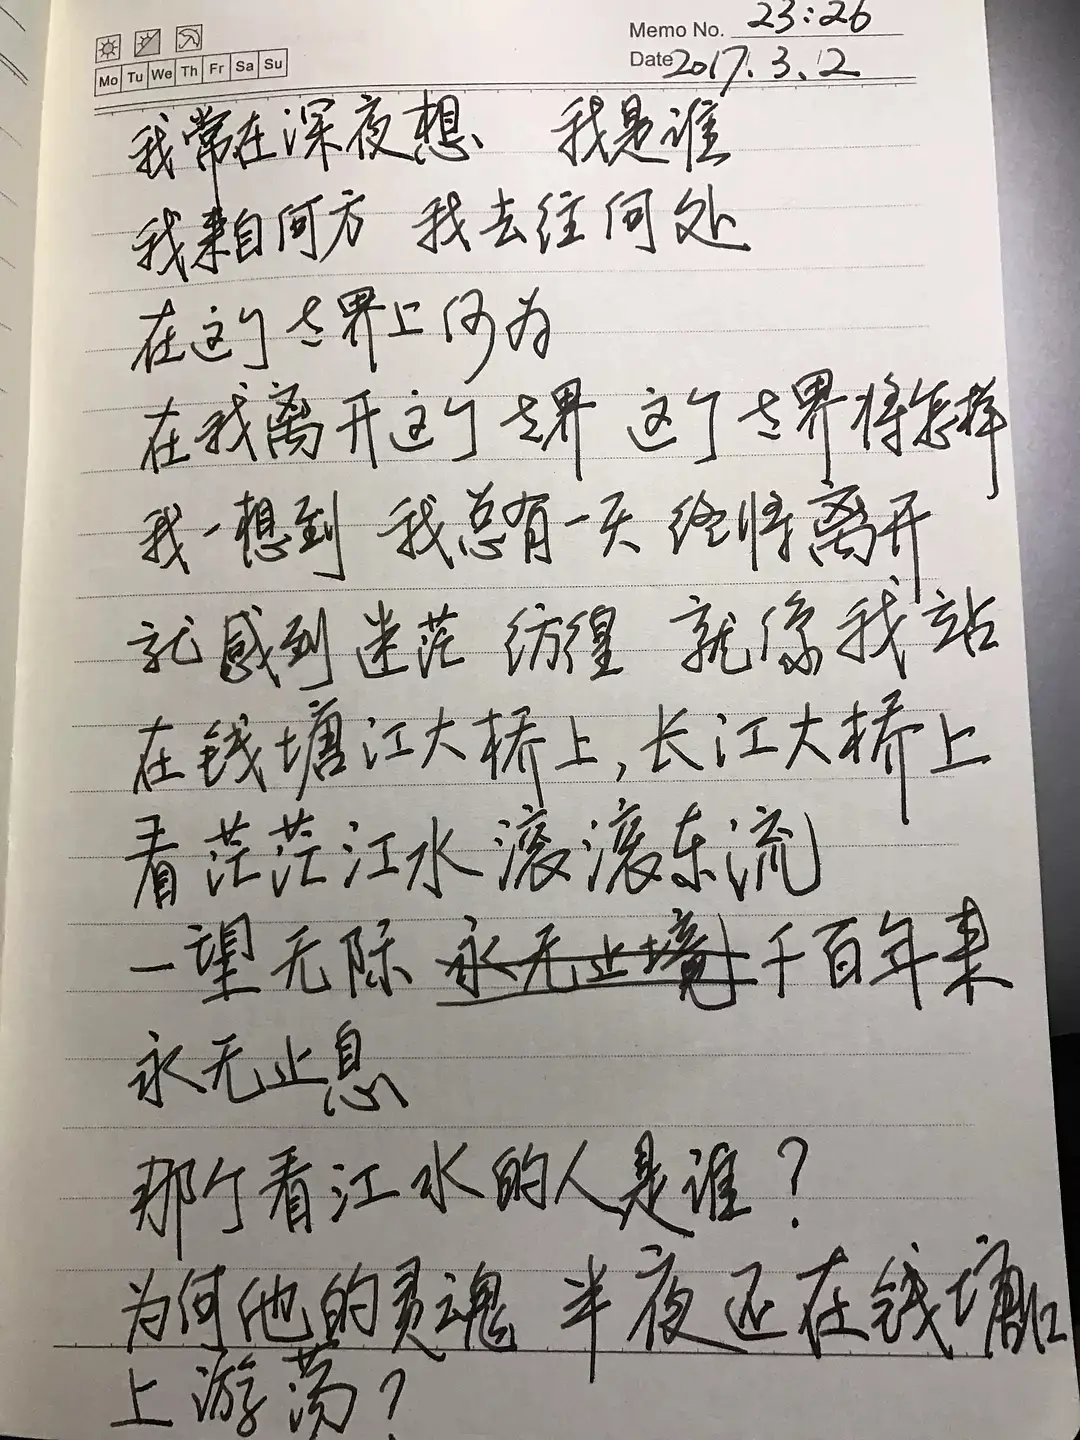 Memo No. 23:26
Mo Tu We Th Fr Sa Su
Date 2017.3.2
我常在深夜想、 我是谁
我来自何方 我去往何处
在这个世界上何为
在我离开这个世界 这个世界将怎样
我一想到 我总有一天 终将离开
就感到迷茫 彷徨 就像我站
在钱塘江大桥上,长江大桥上
看茫茫江水滚滚东流
一望无际 永无止境 千百年来
永无止息
那个看江水的人是谁?
为何他的灵魂 半夜还在钱塘江
上游荡?